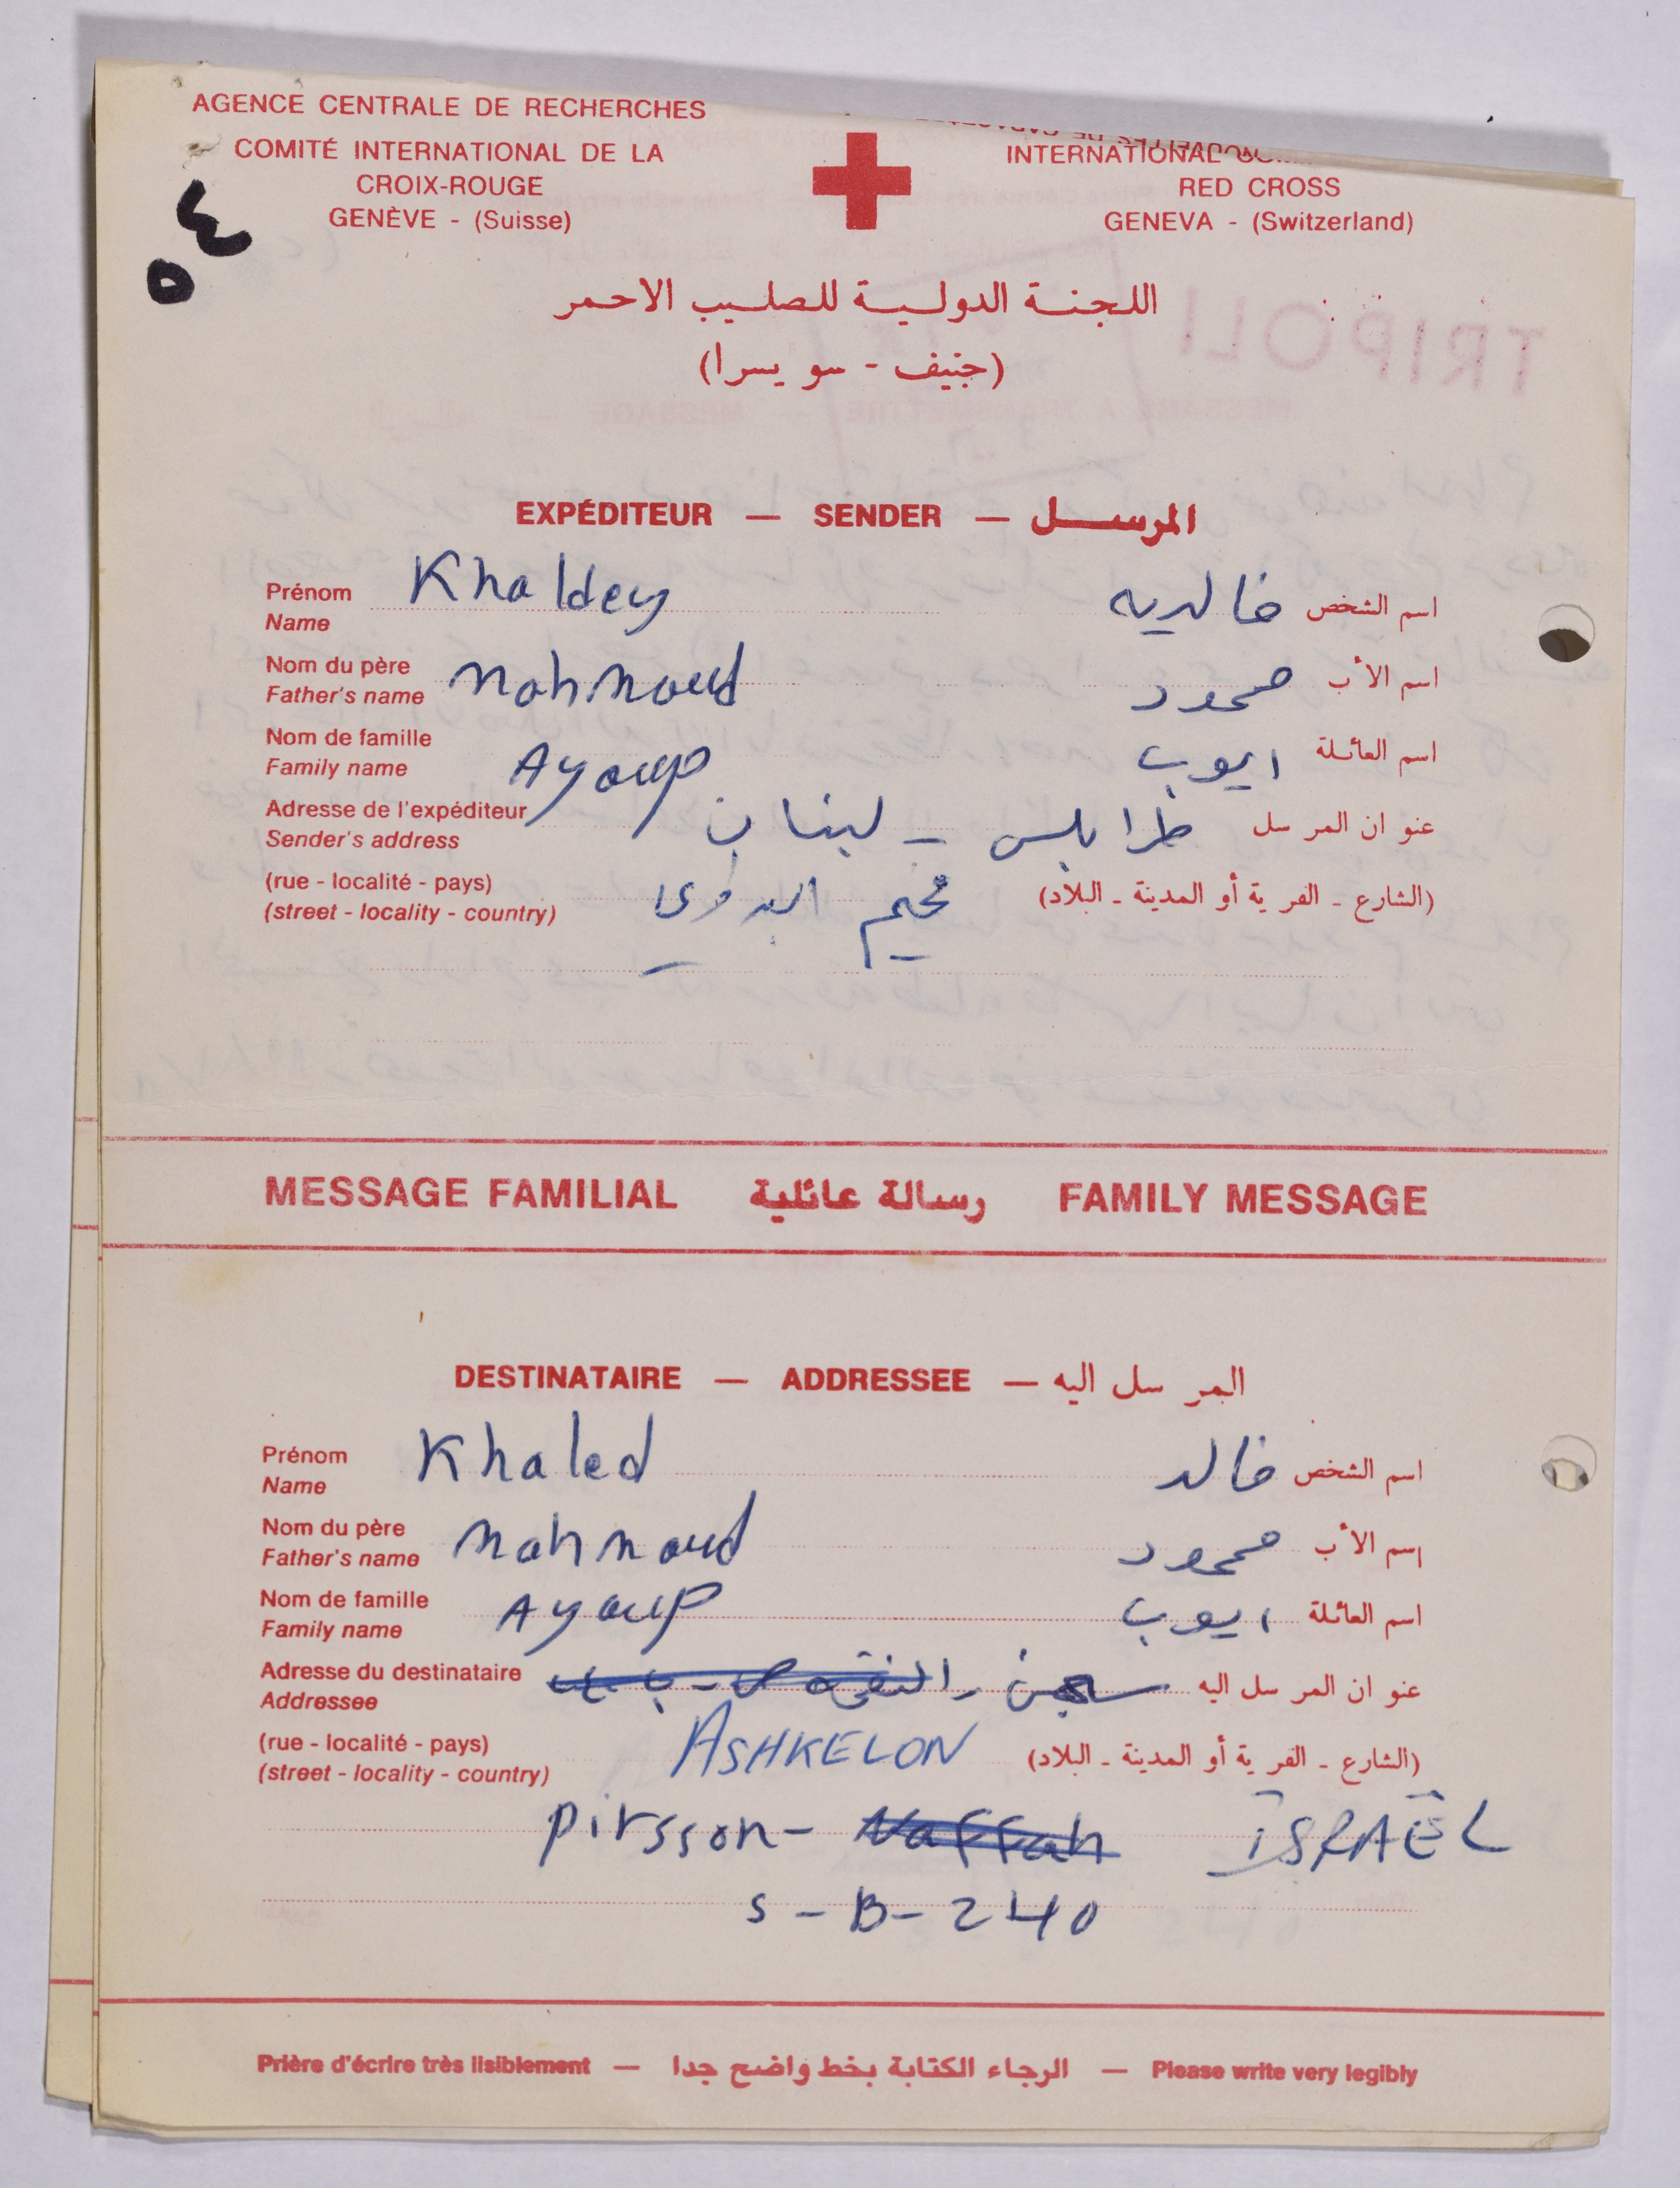 AGENCE CENTRALE DE RECHERCHES
COMITÉ INTERNATIONAL DE LA
CROIX-ROUGE
GENÈVE - (Suisse)
INTERNATIONAL
RED CROSS
GENEVA - (Switzerland)
٥٤
اللجنة الدولية للصليب الاحمر
(جنيف - سويسرا)
TRIPOLI
EXPÉDITEUR — SENDER — المرسل
Prénom Khaldey خالديه اسم الشخص
Name
Nom du père Mahmoud محمود اسم الأب
Father's name
Nom de famille Ayoup ايوب اسم العائلة
Family name
Adresse de l'expéditeur عنوان المرسل طرابلس - لبنان
Sender's address
(rue - localité - pays) (الشارع - القرية أو المدينة - البلاد) مخيم البداوي
(street - locality - country)
MESSAGE FAMILIAL رسالة عائلية FAMILY MESSAGE
DESTINATAIRE — ADDRESSEE — المرسل اليه
Prénom Khaled خالد اسم الشخص
Name
Nom du père Mahmoud محمود اسم الأب
Father's name
Nom de famille Ayoup ايوب اسم العائلة
Family name
Adresse du destinataire عنوان المرسل اليه سجن
Addressee
(rue - localité - pays) ASHKELON (الشارع - القرية أو المدينة - البلاد)
(street - locality - country)
Pirsson - Naffah ISRAËL
S - B - 240
Prière d'écrire très lisiblement — الرجاء الكتابة بخط واضح جدا — Please write very legibly